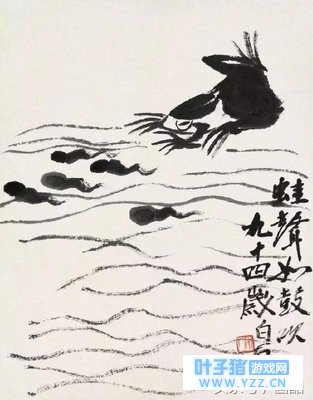 蛙聲如鼓吹
九十四歲白石
叶子猪游戏网
WWW.YZZ.CN